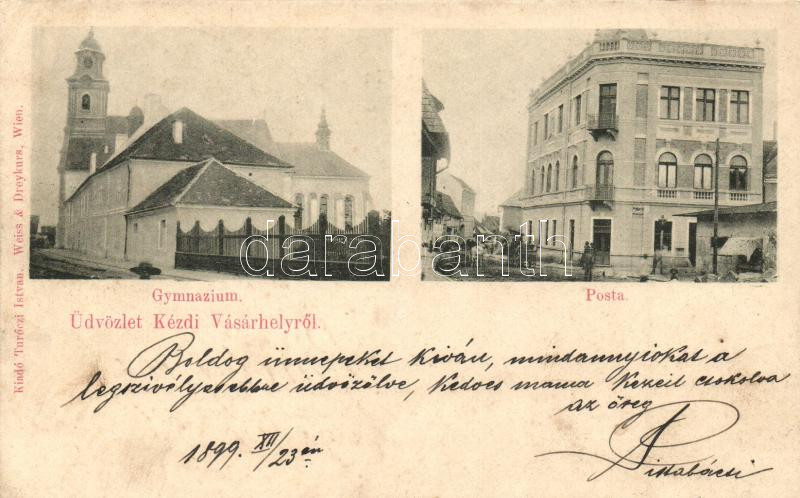 Gymnazium.
Posta.
Üdvözlet Kézdi Vásárhelyről.
Kiadó Turóczi Istvan. Weiss & Dreykurs, Wien.
darabanth.com
Boldog ünnepeket kíván, mindannyiokat a
legszivélyesebbne üdvözölve, kedves mama kezeit csokolva
az öreg
Pistabácsi
1899. XII/23 án